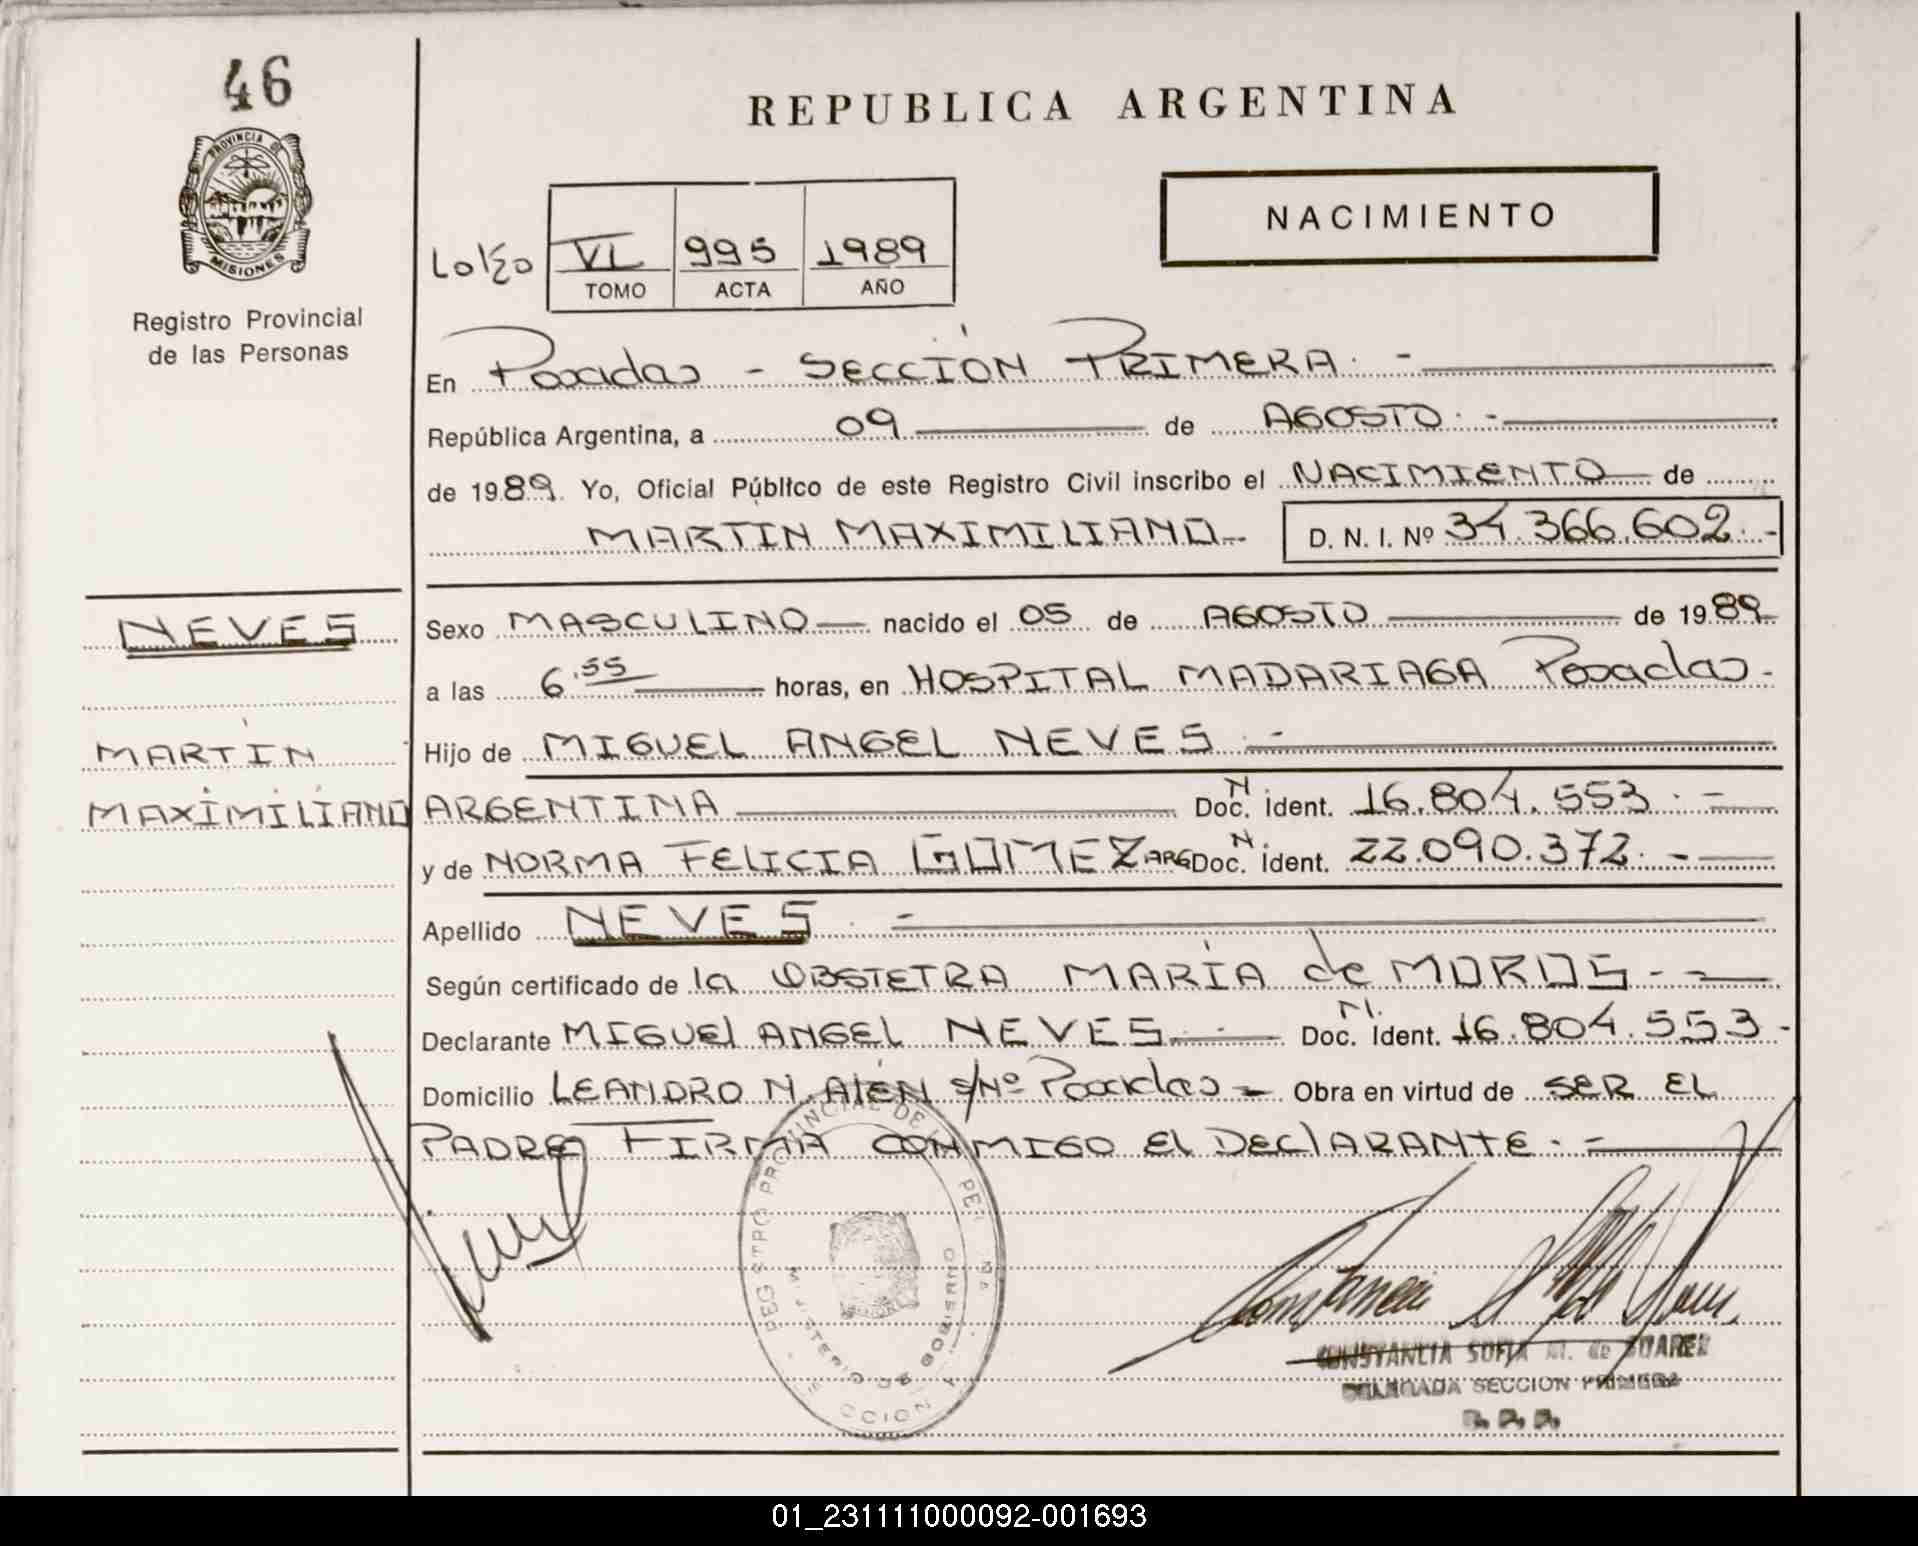 46
PROVINCIA DE
MISIONES
Registro Provincial
de las Personas
REPUBLICA ARGENTINA
NACIMIENTO
VI 995 1989
TOMO ACTA AÑO
En Posadas - SECCIÓN PRIMERA. -
República Argentina, a 09 de AGOSTO. -
de 1989. Yo, Oficial Público de este Registro Civil inscribo el NACIMIENTO de
MARTIN MAXIMILIANO.- D. N. I. Nº 34.366.602.-
NEVES
MARTÍN
MAXIMILIANO
Sexo MASCULINO nacido el 05 de AGOSTO de 1989
a las 6.55 horas, en HOSPITAL MADARIAGA Posadas.-
Hijo de MIGUEL ANGEL NEVES.-
ARGENTINA N Doc. ident. 16.804.553.-
y de NORMA FELICIA GOMEZ ARG N Doc. ident. 22.090.372.-
Apellido NEVES.-
Según certificado de la OBSTETRA MARÍA de MOROS.-
Declarante MIGUEl ANGEL NEVES.- N. Doc. ident. 16.804.553-
Domicilio LEANDRO N. AlEN S/Nº Posadas - Obra en virtud de SER EL
PADRE FIRMA CONMIGO El DEClARANTE.-
CONSTANCIA SOFIA M. de SUAREZ
DELEGADA SECCION PRIMERA
01_231111000092-001693